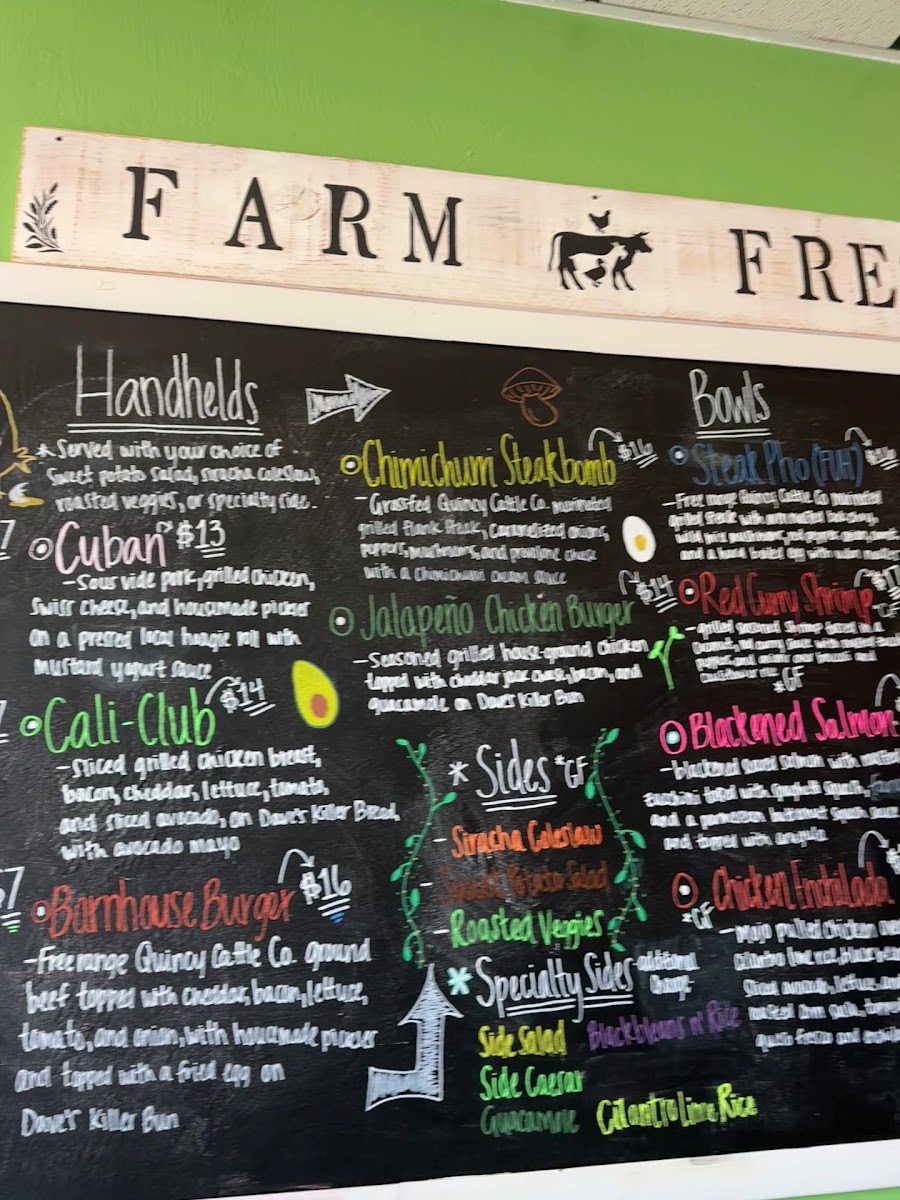 FARM FRE
Handhelds
*Served with your choice of
sweet potato salad, siracha coleslaw,
roasted veggies, or specialty side.
7
Cuban $13
-Sous vide pork, grilled chicken,
swiss cheese, and housemade pickles
on a pressed local hoagie roll with
mustard yogurt sauce
Cali-Club $14
-sliced grilled chicken breast,
bacon, cheddar, lettuce, tomato,
and sliced avocado, on Dave's Killer Bread,
with avocado mayo
$7
Barnhouse Burger $16
-Free range Quincy Cattle Co. ground
beef topped with cheddar, bacon, lettuce,
tomato, and onion, with housemade pickles
and topped with a fried egg on
Dave's Killer Bun
Chimichurri Steakbomb $16
-Grassfed Quincy Cattle Co. marinated
grilled flank steak, caramelized onions,
peppers, mushrooms, and provolone cheese
with a Chimichurri cream sauce
Jalapeño Chicken Burger $14
-Seasoned grilled house-ground chicken
topped with cheddar jack cheese, bacon, and
guacamole on Dave's Killer Bun
*Sides *GF
-Siracha Coleslaw
-Sweet Potato Salad
-Roasted Veggies
*Specialty Sides -additional
Charge-
Side Salad Blackbeans n' Rice
Side Caesar
Guacamole Cilantro Lime Rice
Bowls
Steak Pho (FUH) $16
-Free range Quincy Cattle Co marinated
grilled steak with
wild mix mushrooms, red pepper,
and a hard boiled egg with
Red Curry Shrimp
*GF
-grilled seasoned shrimp tossed in a
Coconut, red curry sauce with
cauliflower rice
*GF
Blackened Salmon
-blackened salmon with roasted
zucchini tossed with spaghetti squash,
and a parmesan butternut squash sauce
and topped with arugula
Chicken Enchilada
*GF
-Mojo pulled chicken over
cilantro lime rice, black beans
sliced avocado, lettuce, and
roasted corn salsa,
queso fresco and enchilada